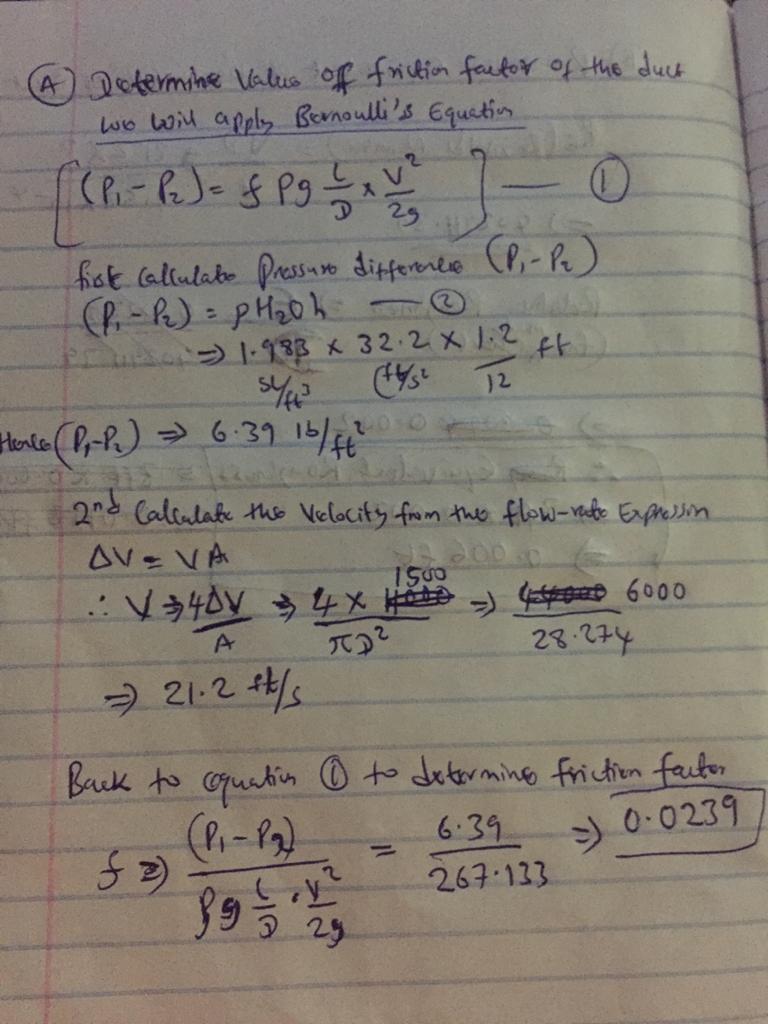 (A) Determine Value off friction factor of the duct
we will apply Bernoulli's Equation
[(P₁ - P₂) = f ρg L/D × V²/2g] — (1)
first Calculate Pressure difference (P₁ - P₂)
(P₁ - P₂) = ρH₂Oh — (2)
⇒ 1.983 sl/ft³ × 32.2 (ft/s² × 1.2/12 ft
Hence (P₁-P₂) ⇒ 6.39 lb/ft²
2nd Calculate the Velocity from the flow-rate Expression
ΔV = VA
∴ V ⇒ 4ΔV/A ⇒ 4 × 1500/πD² ⇒ 6000/28.274
⇒ 21.2 ft/s
Back to equation (1) to determine friction factor
f ⇒ (P₁ - P₂)/ρg L/D · V²/2g = 6.39/267.133 ⇒ 0.0239